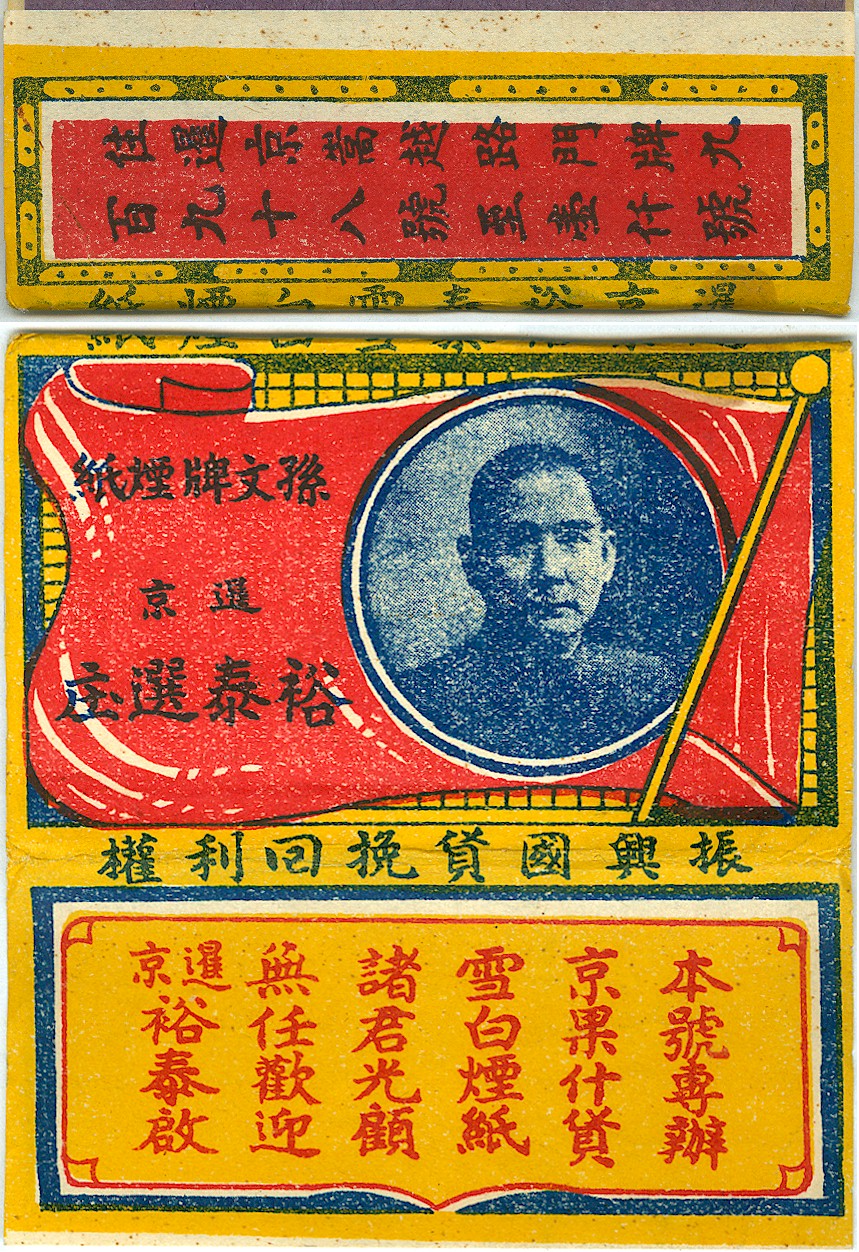 住暹京嵩越路門牌九
百九十八號至壹仟號
暹京裕泰雪白煙紙
孫文牌煙紙
暹京
裕泰選庄
振興國貨挽回利權
本號專辦
京果什貨
雪白煙紙
諸君光顧
無任歡迎
暹京裕泰啟